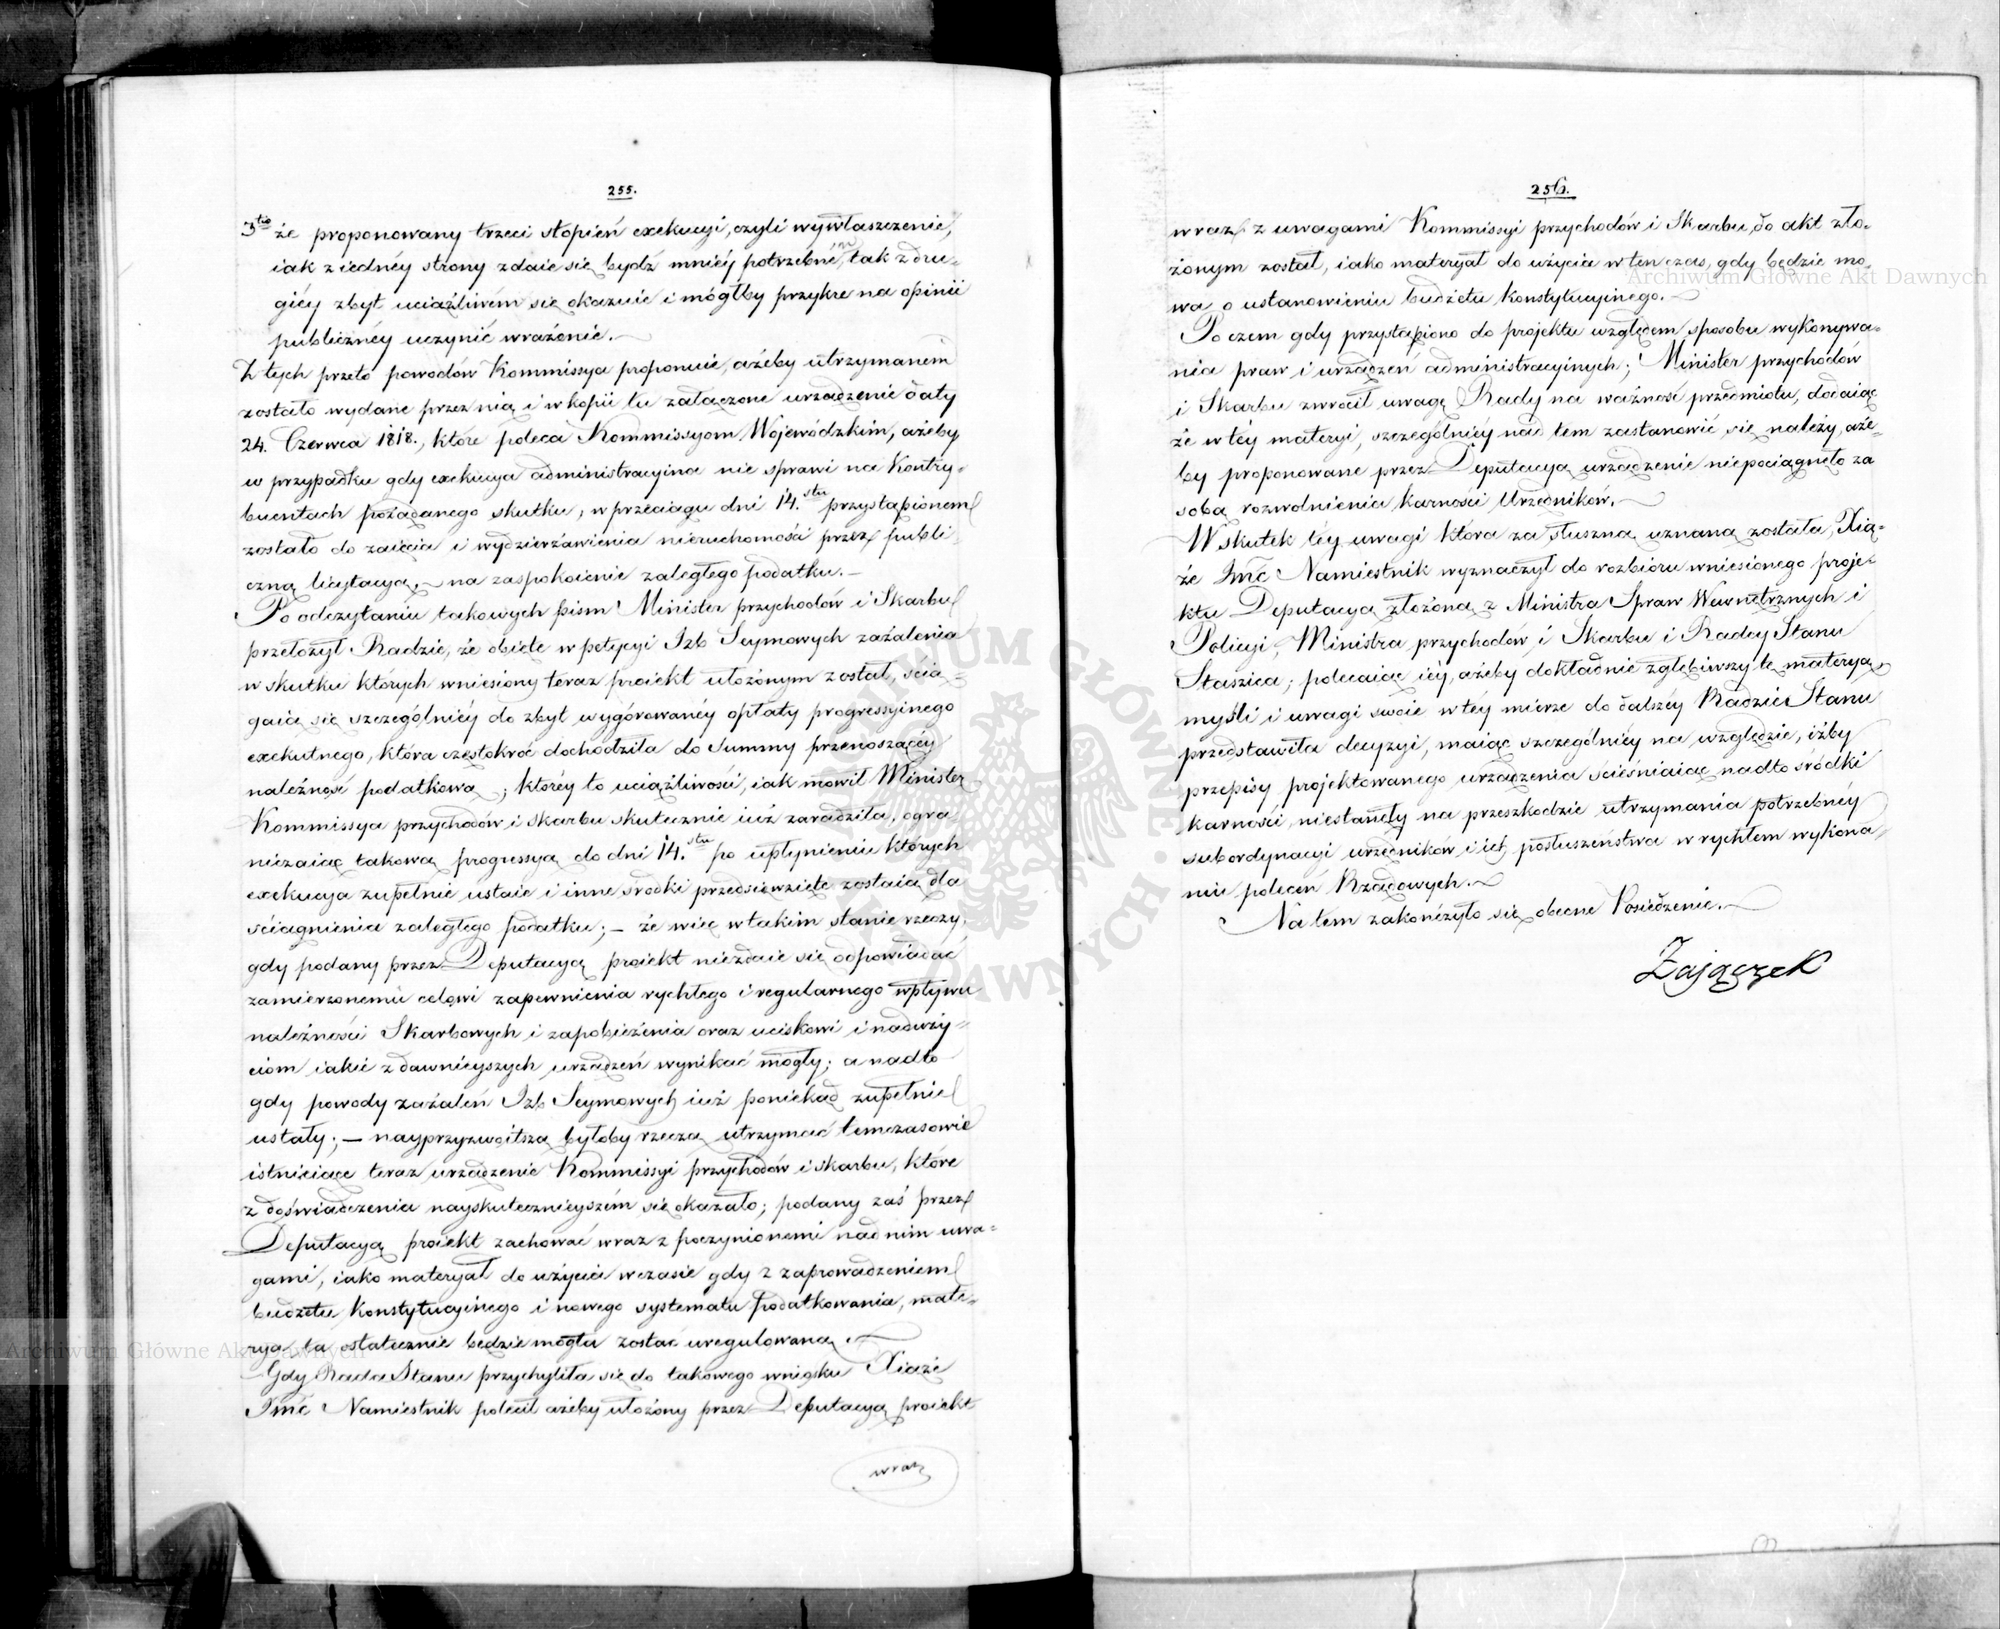 255.
3tio że proponowany trzeci stopień exekucyi, czyli wywłaszczenie,
iak z iednéy strony zdaie się bydź mniéy potrzebném, tak z dru-
giéy zbyt uciążliwém się okazuie i mógłby przykre na opinii
publicznéy uczynić wrażenie.—
Z tych przeto powodów Kommissya proponuie, ażeby utrzymanem
zostało wydane przez nią i w kopii tu załączone urządzenie daty
24. Czerwca 1818., które poleca Kommissyom Wojewódzkim, ażeby
w przypadku gdy exekucya administracyina nie sprawi na Kontry-
buentach pożądanego skutku, w przeciągu dni 14.stu przystąpionem
zostało do zaięcia i wydzierżawienia nieruchomości przez publi-
czną licytacyą,— na zaspokoienie zaległego podatku.—
Po odczytaniu takowych pism Minister przychodów i Skarbu
przełożył Radzie, że obięte w petycyi Izb Seymowych zażalenia
w skutku których wniesiony teraz proiekt ułożonym został, ścią-
gaią się szczególniéy do zbyt wygórowanéy opłaty progressyinego
exekutnego, która częstokroć dochodziła do Summy przenoszącéy
należność podatkową; któréy to uciążliwości, iak mówił Minister
Kommissya przychodów i skarbu skutecznie iuż zaradziła, ogra-
niczaiąc takową progressyą do dni 14.stu po upłynieniu których
exekucya zupełnie ustaie i inne środki przedsięwzięte zostaią dla
ściągnienia zaległego podatku;— że więc w takim stanie rzeczy,
gdy podany przez Deputacyą proiekt niezdaie się odpowiadać
zamierzonemu celowi zapewnienia rychłego i regularnego wpływu
należności Skarbowych i zapobieżenia oraz uciskowi i naduży-
ciom iakie z dawnieyszych urządzeń wynikać mogły; a nadto
gdy powody zażaleń Izb Seymowych iuż poniekąd zupełnie
ustały;— nayprzyzwoitszą byłoby rzeczą utrzymać tymczasowie
istnieiące teraz urządzenie Kommissyi przychodów i skarbu, które
z doświadczenia nayskutecznieyszém się okazało; podany zaś przez
Deputacyą proiekt zachować wraz z poczynionemi nad nim uwa-
gami, iako materyał do użycia w czasie gdy z zaprowadzeniem
budżetu Konstytucyinego i nowego systematu podatkowania, mate-
rya ta ostatecznie będzie mogła zostać uregulowaną.—
Gdy Rada Stanu przychyliła się do takowego wniosku Xiąże
Jmć Namiestnik polecił ażeby ułożony przez Deputacyą proiekt
wraz
256.
wraz z uwagami Kommissyi przychodów i Skarbu, do akt zło-
żonym został, iako materyał do użycia w ten czas, gdy będzie mo-
wa o ustanowieniu budżetu Konstytucyinego.—
Po czem gdy przystąpiono do projektu względem sposobu wykonywa-
nia praw i urządzeń administracyinych; Minister przychodów
i Skarbu zwrócił uwagę Rady na ważność przedmiotu, dodaiąc
że w téy materyi, szczególniéy nad tem zastanowić się należy, aże-
by proponowane przez Deputacyą urządzenie niepociągnęło za
sobą rozwolnienia karności Urzędników.—
W skutek téy uwagi która za słuszną uznaną została, Xią-
że Jmć Namiestnik wyznaczył do rozbioru wniesionego proje-
ktu Deputacyą złożoną z Ministra Spraw Wewnętrznych i
Policyi, Ministra przychodów i Skarbu i Radcy Stanu
Staszica; polecaiąc iéy, ażeby dokładnie zgłębiwszy tę materyą,
myśli i uwagi swoie w téy mierze do dalszéy Radzie Stanu
przedstawiła decyzyi, maiąc szczególniéy na względzie, iżby
przepisy projektowanego urządzenia ścieśniaiąc nadto śródki
karności, niestanęły na przeszkodzie utrzymania potrzebnéy
subordynacyi urzędników i ich posłuszeństwa w rychłem wykona-
niu poleceń Rządowych.—
Na tem zakończyło się obecne Posiedzenie.—
Zajączek
Archiwum Główne Akt Dawnych
Archiwum Główne Akt Dawnych
ARCHIWUM GŁÓWNE AKT DAWNYCH